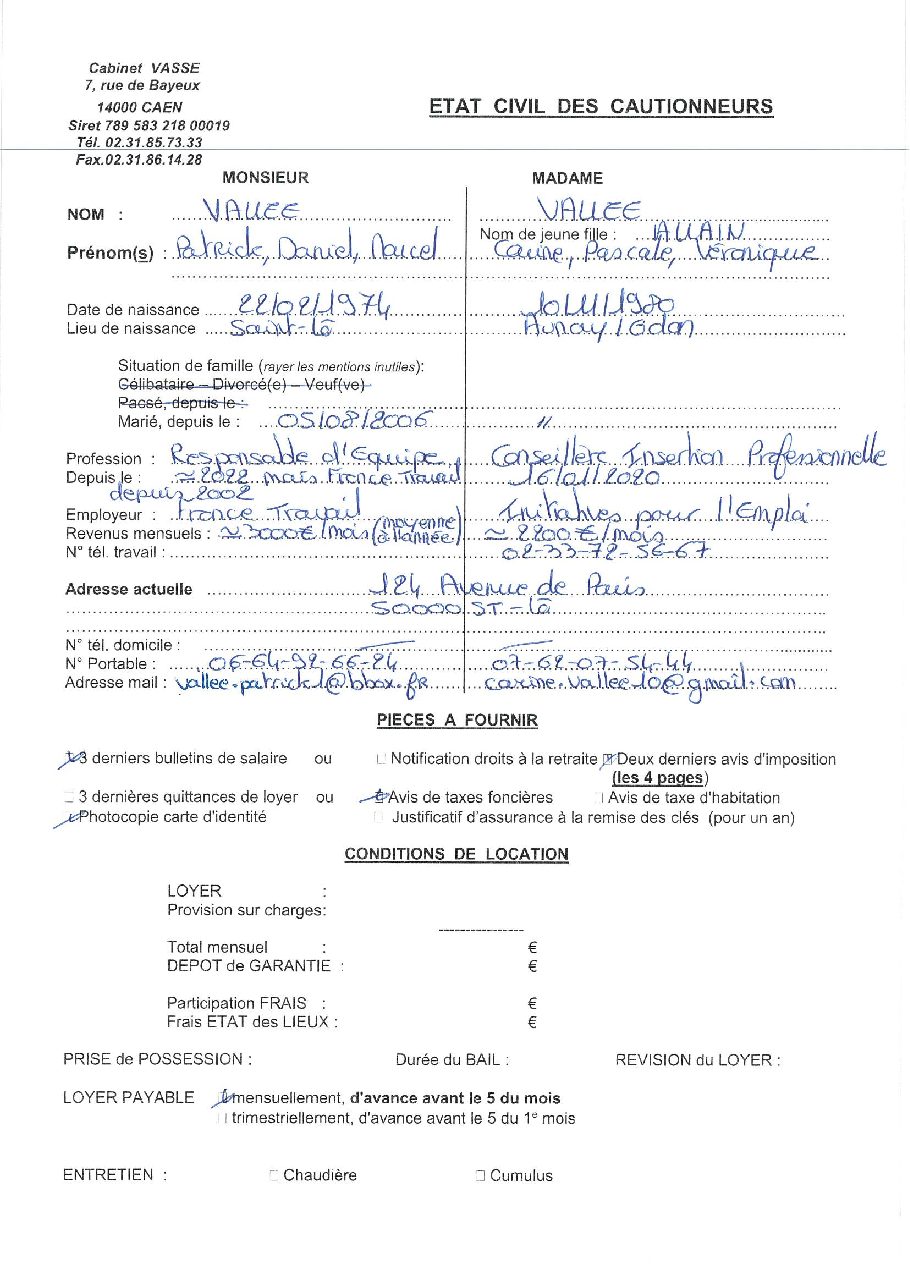 Cabinet VASSE
7, rue de Bayeux
14000 CAEN
Siret 789 583 218 00019
Tél. 02.31.85.73.33
Fax.02.31.86.14.28
ETAT CIVIL DES CAUTIONNEURS
MONSIEUR MADAME
NOM : VALLEE VALLEE
Nom de jeune fille : ALLAIN
Prénom(s) : Patrick, Daniel, Marcel Carine, Pascale, Véronique
Date de naissance 22/02/1974 10/11/1980
Lieu de naissance Saint-Lô Aunay/Odon
Situation de famille (rayer les mentions inutiles):
Célibataire – Divorcé(e) – Veuf(ve)
Pacsé, depuis le :
Marié, depuis le : 05/08/2006 //
Profession : Responsable d'Equipe Conseillère Insertion Professionnelle
Depuis le : ≈ 2022 mais France Travail 16/01/2020
depuis 2002
Employeur : France Travail Initiatives pour l'Emploi
Revenus mensuels : ≈ 3000€/mois (moyenne à l'année) ≈ 2200€/mois
N° tél. travail : 02-33-72-56-67
Adresse actuelle 124 Avenue de Paris
50000 ST-Lô
N° tél. domicile :
N° Portable : 06-64-92-66-24 07-62-07-54-44
Adresse mail : vallee.patrick1@bbox.fr carine.vallee10@gmail.com
PIECES A FOURNIR
3 derniers bulletins de salaire ou Notification droits à la retraite Deux derniers avis d'imposition
(les 4 pages)
3 dernières quittances de loyer ou Avis de taxes foncières Avis de taxe d'habitation
Photocopie carte d'identité Justificatif d'assurance à la remise des clés (pour un an)
CONDITIONS DE LOCATION
LOYER :
Provision sur charges:
----------------
Total mensuel : €
DEPOT de GARANTIE : €
Participation FRAIS : €
Frais ETAT des LIEUX : €
PRISE de POSSESSION : Durée du BAIL : REVISION du LOYER :
LOYER PAYABLE mensuellement, d'avance avant le 5 du mois
trimestriellement, d'avance avant le 5 du 1e mois
ENTRETIEN : Chaudière Cumulus